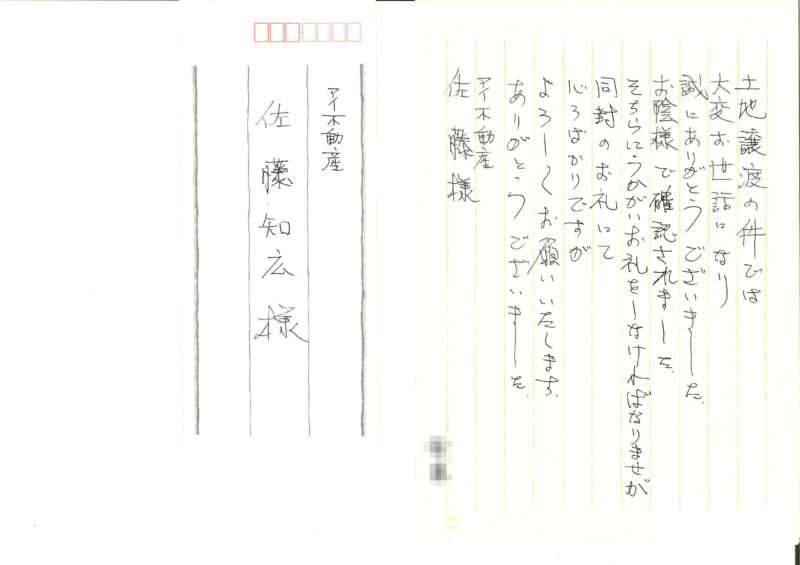 土地譲渡の件では
大変お世話になり
誠にありがとうございました。
お陰様で確認されました。
そちらにうかがいお礼をしなければなりませが
同封のお礼にて
心ろばかりですが
よろしくお願いいたします。
ありがとうございました。
アイ不動産
佐藤様
アイ不動産
佐藤知広様